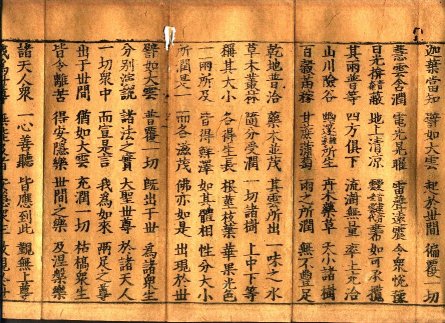 迦葉當知 譬如大雲 起於世間 徧覆一切
慧雲含潤 電光晃曜 雷聲遠震 令衆悅豫
日光掩蔽 地上清涼 靉靆垂布 如可承攬
其雨普等 四方俱下 流澍無量 率土充洽
山川險谷 幽邃所生 卉木藥草 大小諸樹
百穀苗稼 甘蔗蒲萄 雨之所潤 無不豐足
乾地普洽 藥木並茂 其雲所出 一味之水
草木叢林 隨分受潤 一切諸樹 上中下等
稱其大小 各得生長 根莖枝葉 華果光色
一雨所及 皆得鮮澤 如其體相 性分大小
所潤是一 而各滋茂 佛亦如是 出現於世
譬如大雲 普覆一切 既出于世 爲諸衆生
分別演說 諸法之實 大聖世尊 於諸天人
一切衆中 而宣是言 我爲如來 兩足之尊
出于世間 猶如大雲 充潤一切 枯槁衆生
皆令離苦 得安隱樂 世間之樂 及涅槃樂
諸天人衆 一心善聽 皆應到此 覲無上尊